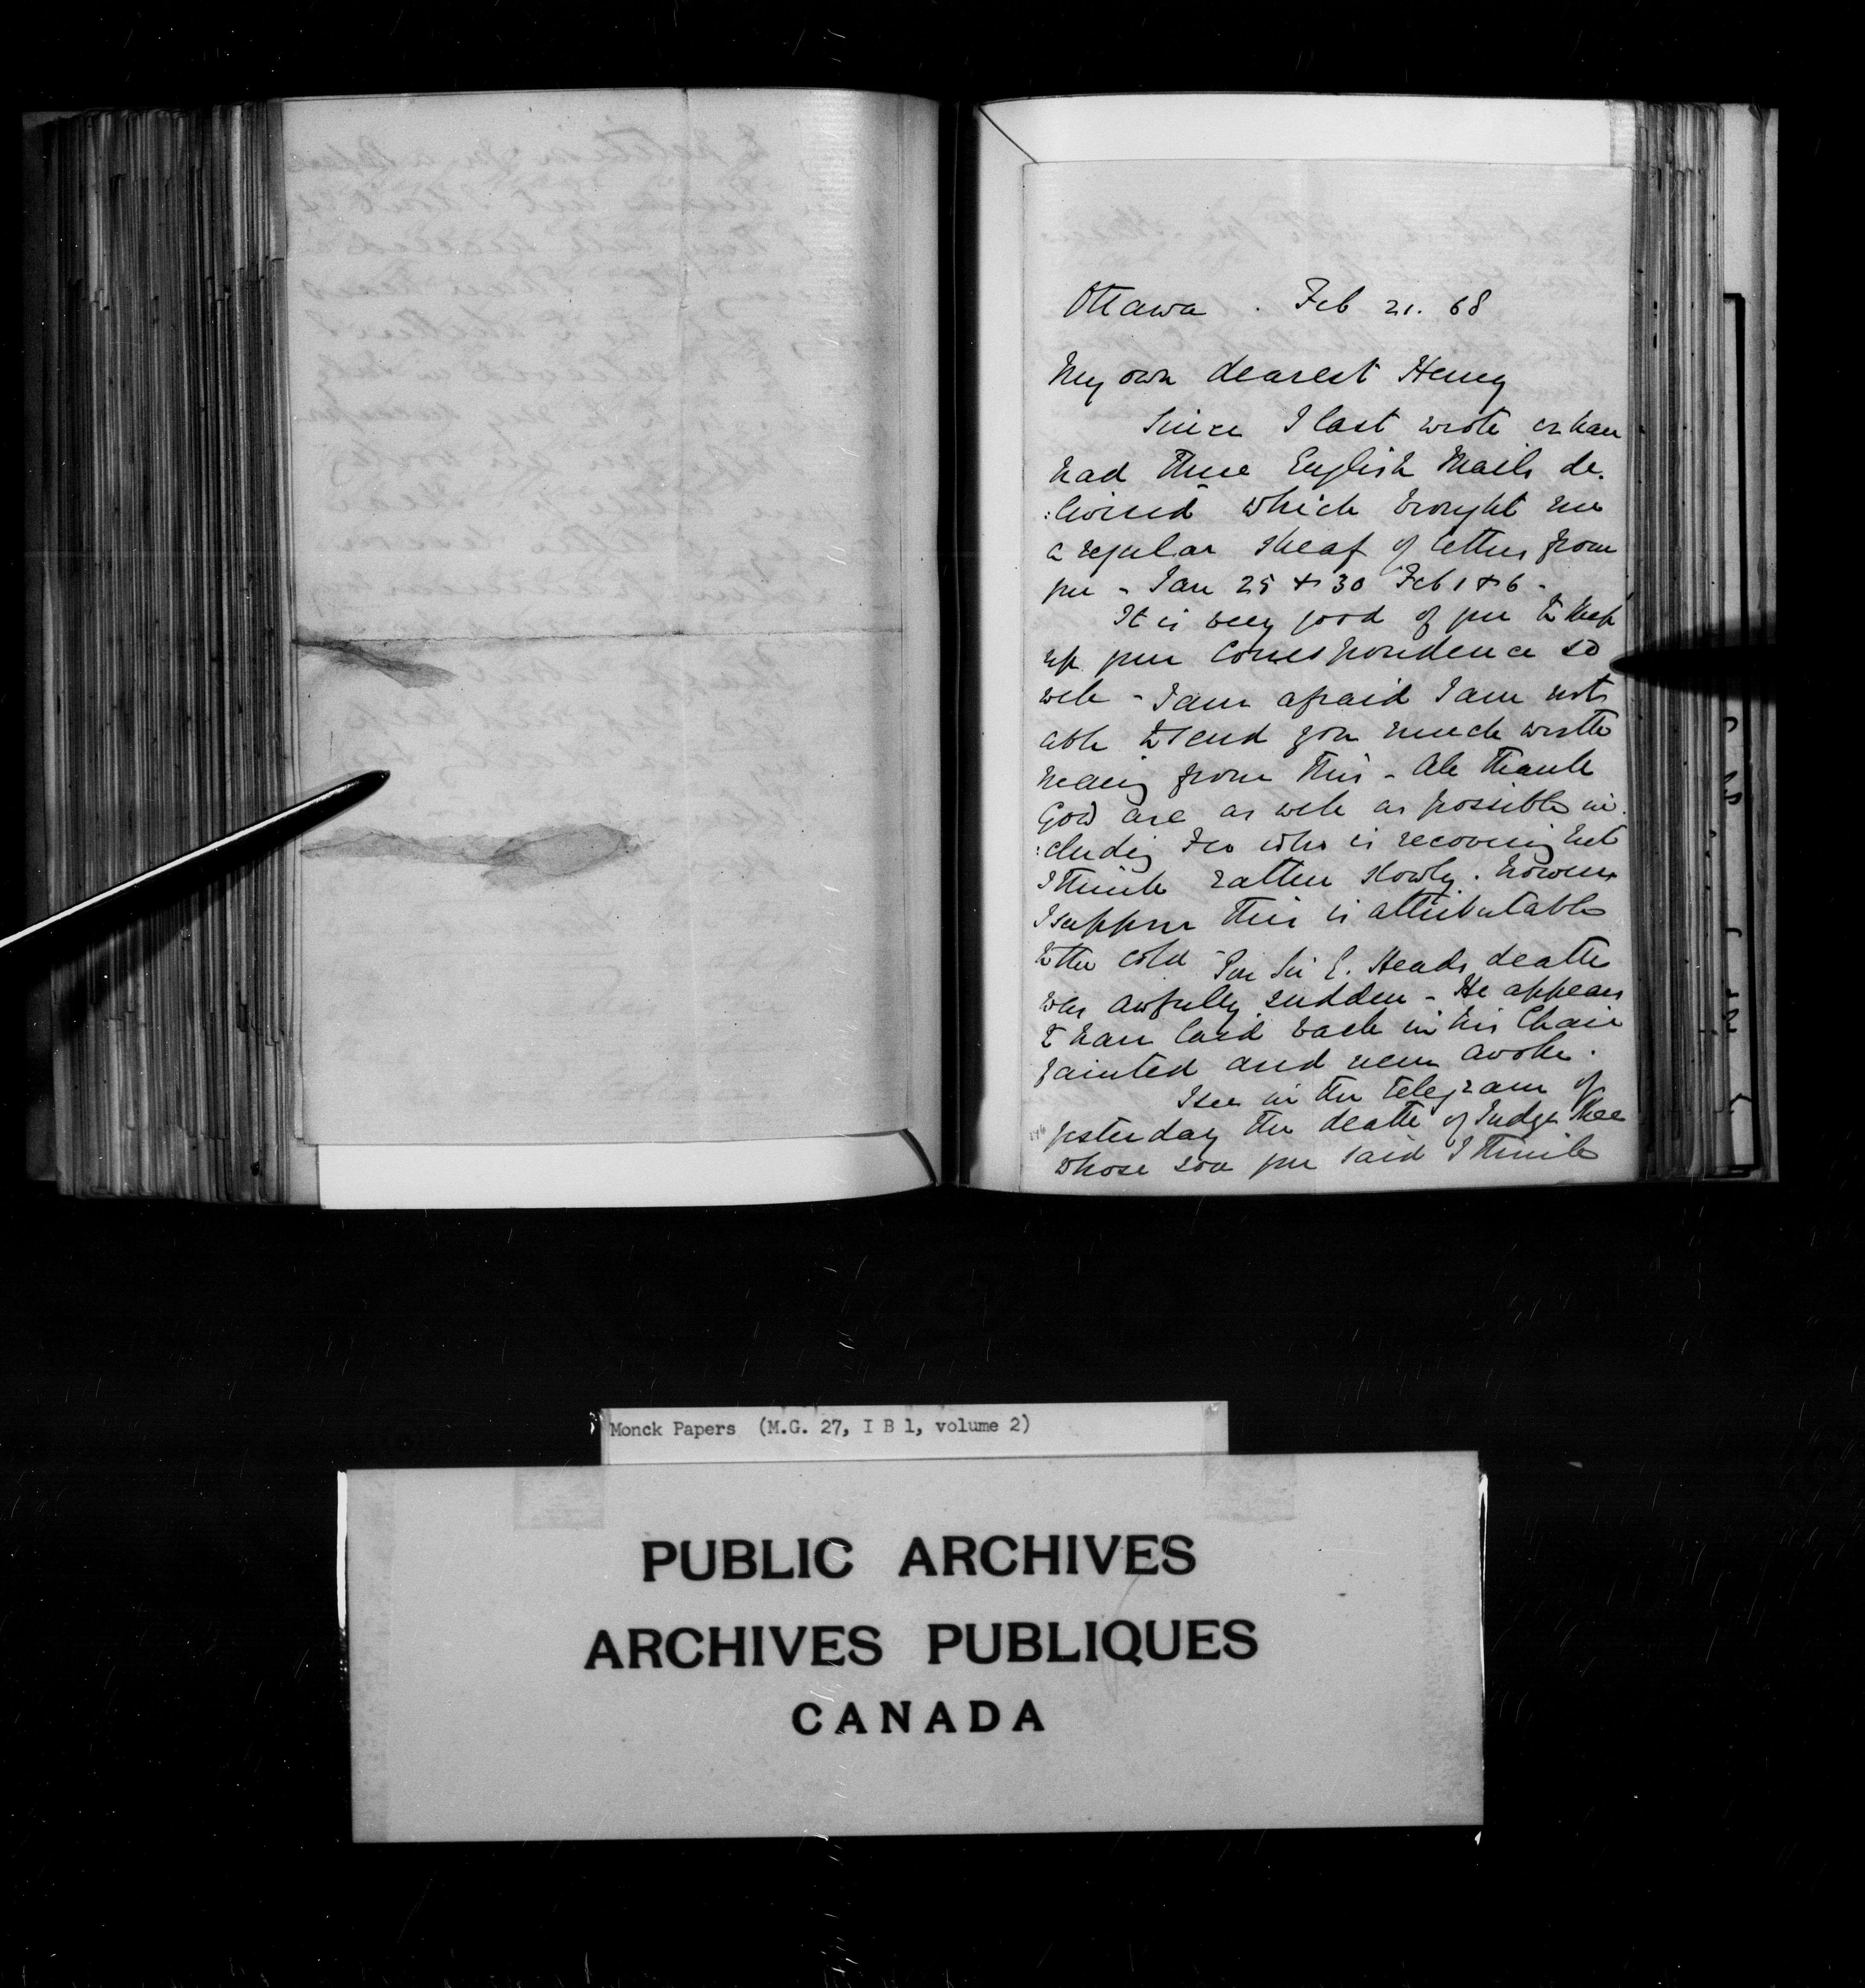 Ottawa . Feb 21. 68
My own dearest Henry
Since I last wrote we have
had three English Mails de.
:livered which brought me
a regular sheaf of letters from
you - Jan 25 & 30 Feb 1 & 6 -
It is very good of you to keep
up your correspondence so
well - I am afraid I am not
able to send you much worth
from this - All thank
God are as well as possible in.
:cluding Feo who is recovering but
I think rather slowly. however
I suppose this is attributable
to the cold - Poor Sir E. Heads death
was awfully sudden - He appears
to have laid back in his Chair
fainted and never awoke.
I see in the telegram of
yesterday the death of Judge Shee
whose son you said I think
Monck Papers (M.G. 27, I B 1, volume 2)
PUBLIC ARCHIVES
ARCHIVES PUBLIQUES
CANADA